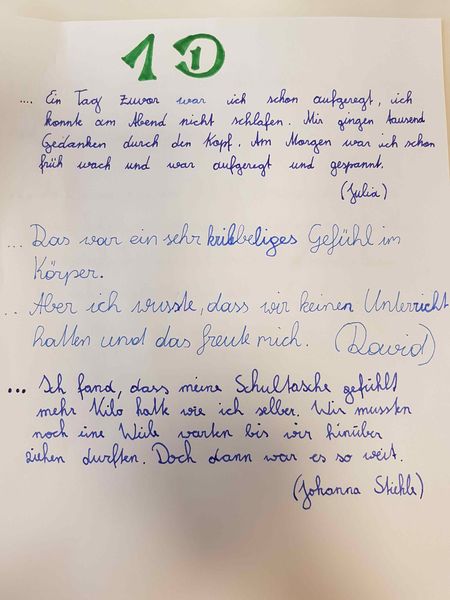 1D
.... Ein Tag zuvor war ich schon aufgeregt, ich
konnte am Abend nicht schlafen. Mir gingen tausend
Gedanken durch den Kopf. Am Morgen war ich schon
früh wach und war aufgeregt und gespannt.
(Julia)
... Das war ein sehr kribbeliges Gefühl im
Körper.
... Aber ich wusste, dass wir keinen Unterricht
hatten und das freute mich. (David)
... Ich fand, dass meine Schultasche gefühlt
mehr Kilo hatte wie ich selber. Wir mussten
noch eine Weile warten bis wir hinüber
ziehen durften. Doch dann war es so weit.
(Johanna Stichle)